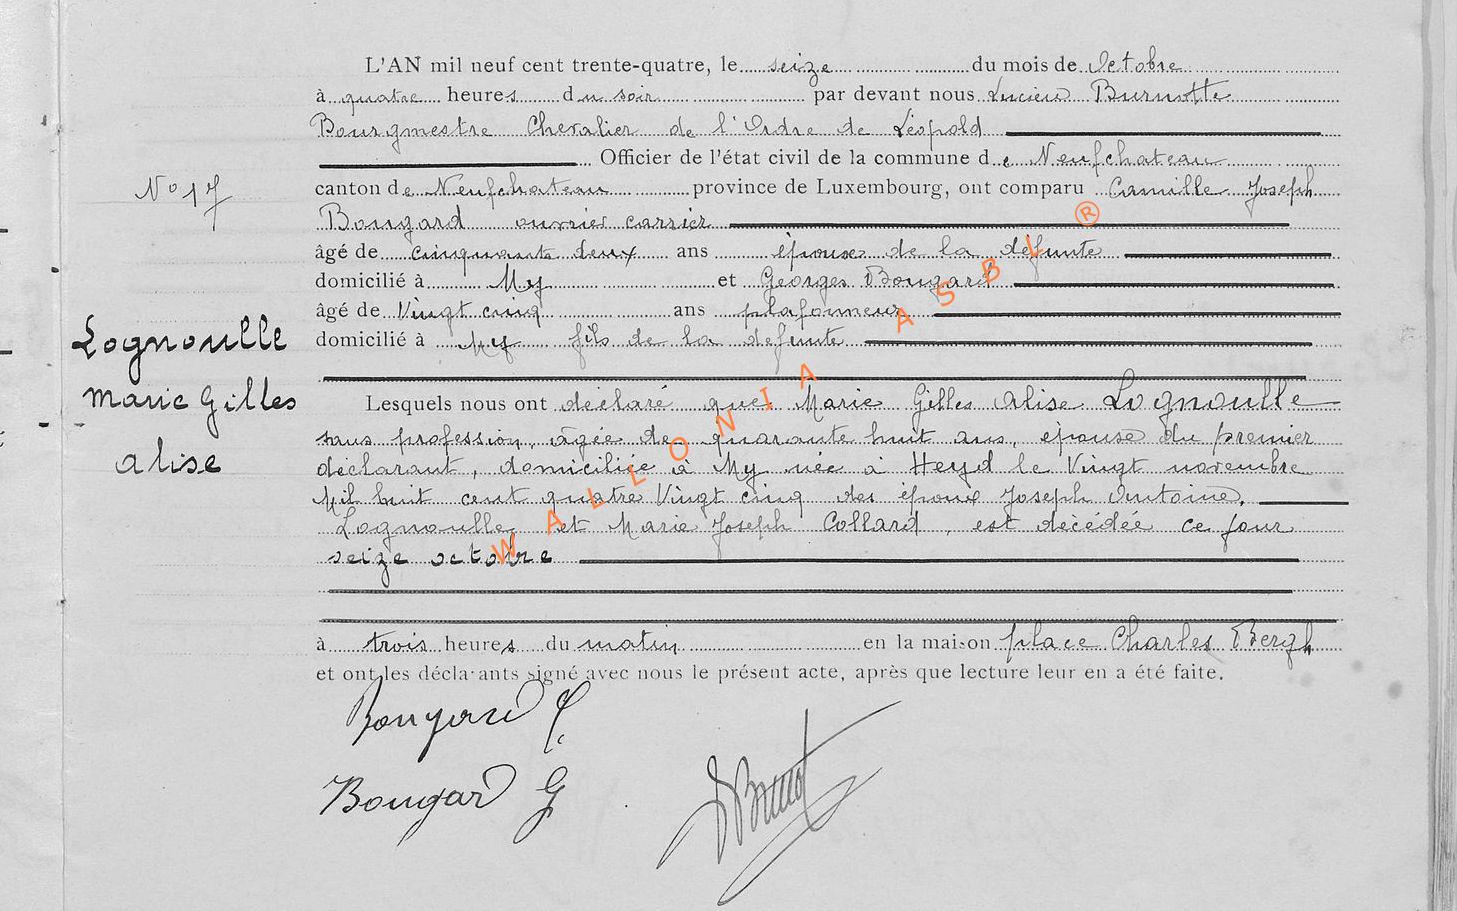 L'AN mil neuf cent trente-quatre, le seize du mois de Octobre
à quatre heures du soir par devant nous Lucien Burnotte
Bourgmestre Chevalier de l'Ordre de Léopold
Officier de l'état civil de la commune de Neufchateau
N° 17
canton de Neufchateau province de Luxembourg, ont comparu Camille Joseph
Bougard ouvrier carrier
âgé de cinquante deux ans époux de la defunte
domicilié à My et Georges Bougard
âgé de Vingt cinq ans plafonneur
domicilié à My fils de la defunte
Lognoulle
Marie Gilles
alise
Lesquels nous ont déclaré que Marie Gilles Alise Lognoulle
sans profession, agée de quarante huit ans, épouse du premier
déclarant, domiciliée à My née à Heyd le Vingt novembre
Mil huit cent quatre Vingt cinq des époux Joseph Antoine,
Lognoulle et Marie Joseph Collard, est décédée ce jour
seize octobre
à trois heures du matin en la maison place Charles Bergh
et ont les déclarants signé avec nous le présent acte, après que lecture leur en a été faite.
Bougard C.
Bougard G
WALLONIA ASBL ®